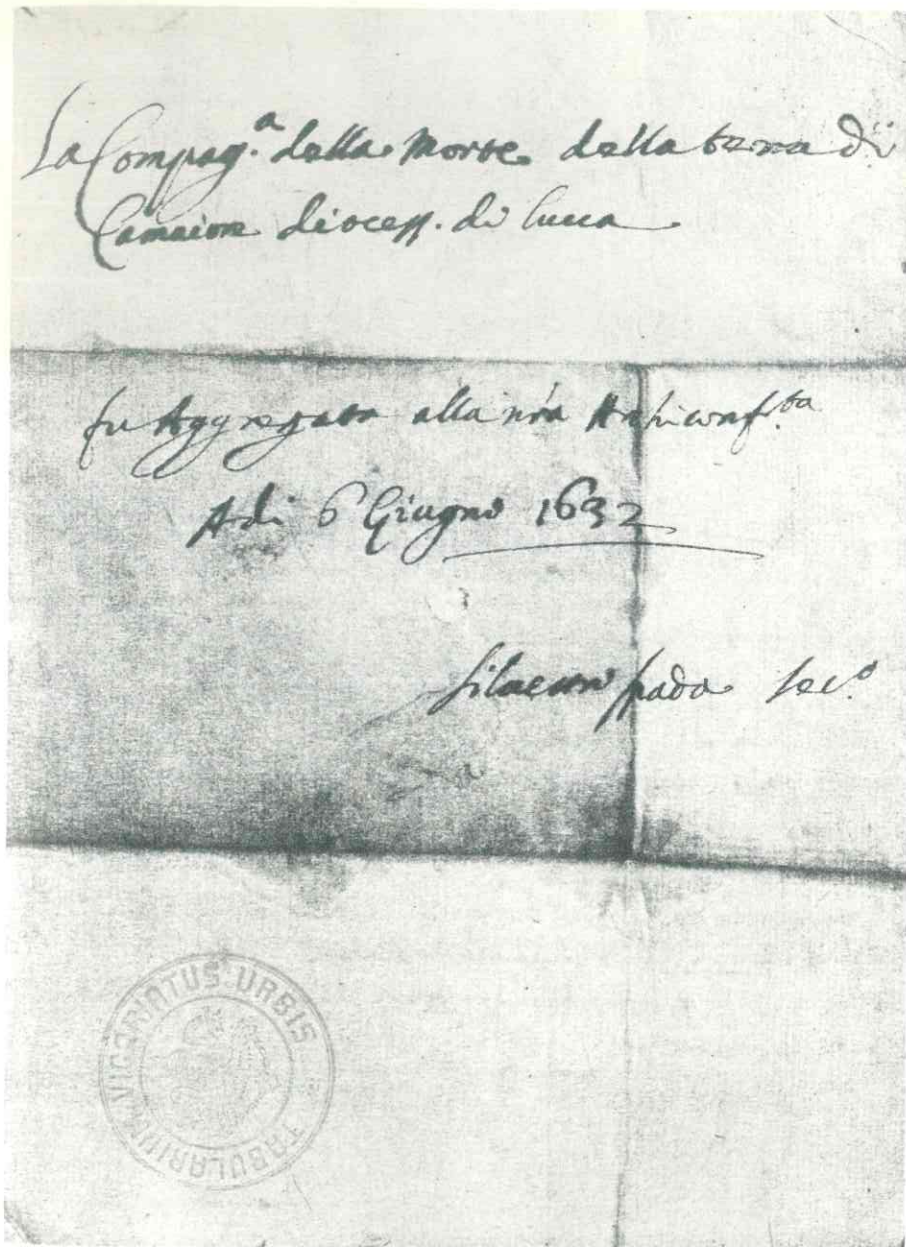 La Compag.ª della Morte della terra di
Camaiore diocess. di lucca
fu Aggregata alla nrã Archiconf.ta
A di 6 Giugno 1632
spada sec.º
VICARIATUS URBIS
TABULARIUM